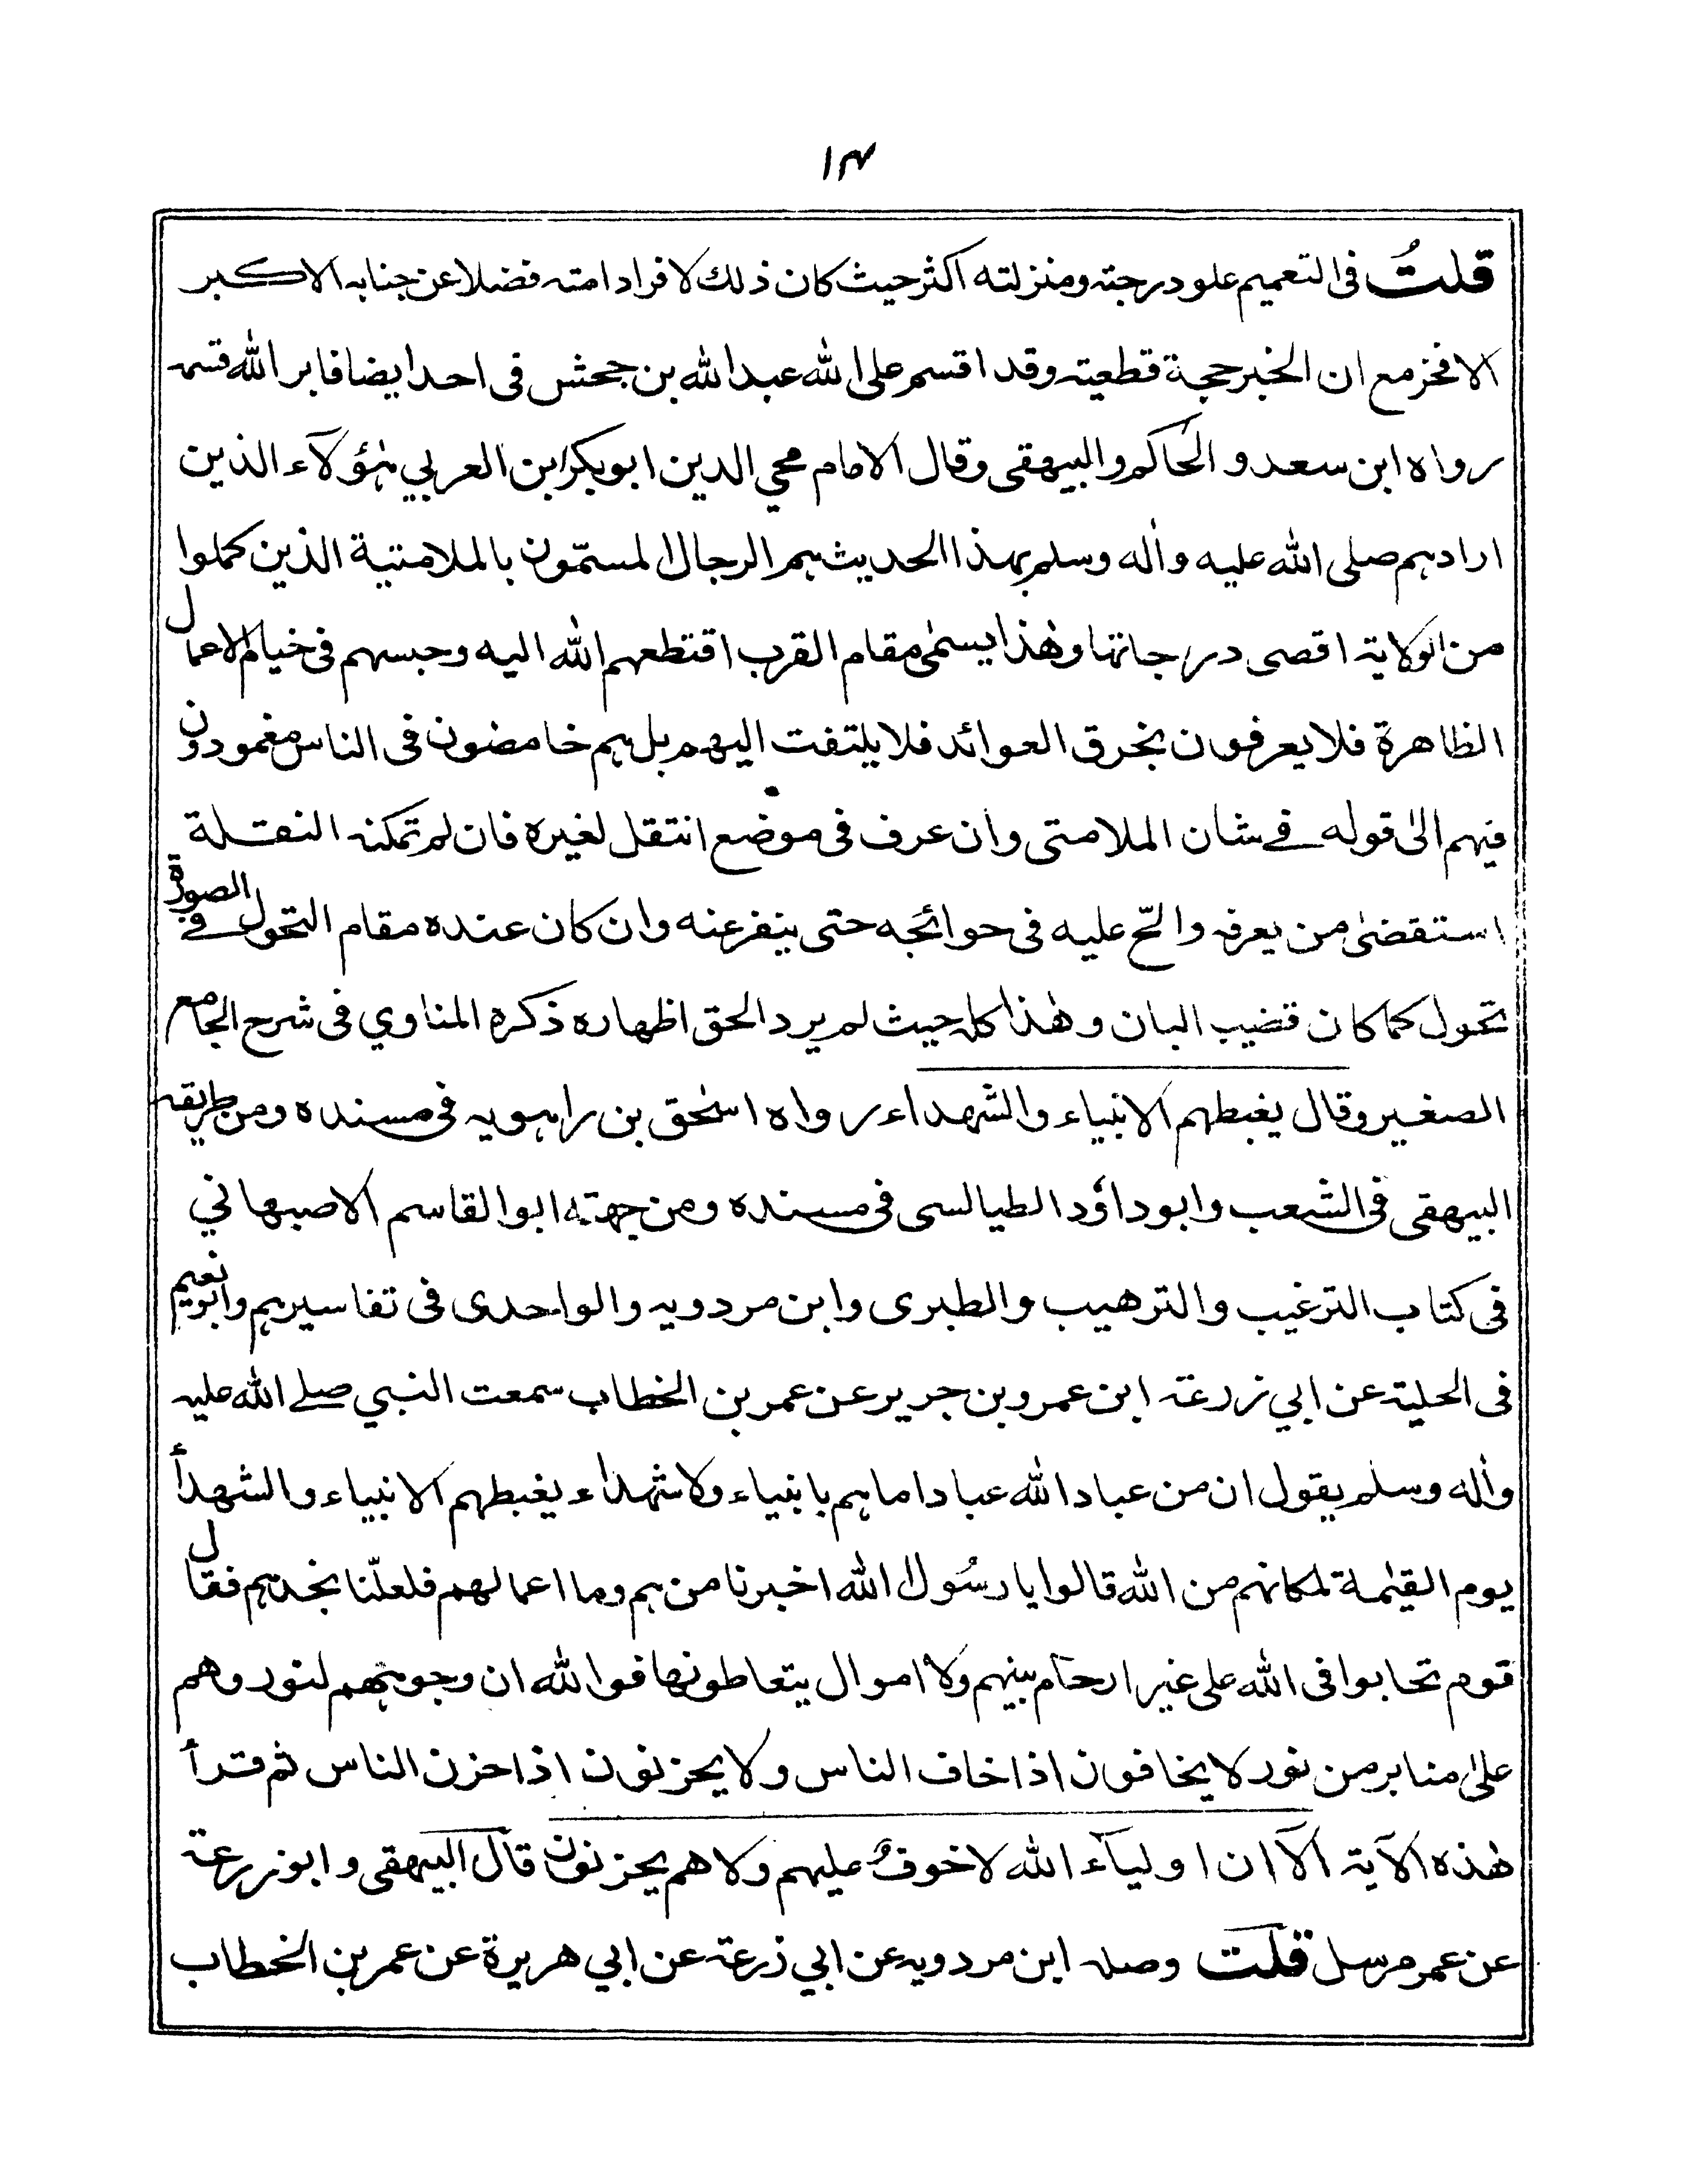 ١٣
قلتُ فی التعميم علو درجتہ ومنزلته اكثر حيث كان ذلك لافراد امتہ فضلا عن جنابہ الاكبر
الافخر مع ان الخبر حجة قطعيتہ وقد اقسم علی الله عبد الله بن جحش فی احد ايضا فابر الله قسمہ
رواه ابن سعد و الحاكم والبيهقی وقال الامام محي الدين ابوبكر ابن العربي هٰؤلآء الذين
ارادہم صلی الله عليه واٰله وسلم بہذا الحديث ہم الرجال المسمّون بالملامتية الذين كملوا
من الولاية اقصی درجاتہا وهٰذا يسمٰی مقام القرب اقتطعہم الله اليه وحبسہم فی خيام الاعمال
الظاهرة فلا يعرفون بخرق العوائد فلا يلتفت اليہم بل ہم خامضون فی الناس مغمودون
فيہم الیٰ قوله فے شان الملامتی وان عرف فی موضع انتقل لغيره فان لم تمكنہ النقلة
استقضیٰ من يعرفہ والحّ عليه فی حوائجه حتی ينفر عنه وان كان عنده مقام التحول فے الصورة
تحول كما كان قضيب البان وهٰذا كلہ حيث لم يرد الحق اظهاره ذكره المناوي فی شرح الجامع
الصغير وقال يغبطہم الانبياء والشہداء رواه اسحٰق بن راہويہ فی مسنده ومن طريقہ
البيهقی فی الشعب وابوداؤد الطيالسی فی مسنده ومن جہتہ ابوالقاسم الاصبهاني
فی كتاب الترغيب والترهيب والطبری وابن مردويہ والواحدی فی تفاسيرہم وابونعيم
فی الحليۃ عن ابي زرعۃ ابن عمرو بن جرير عن عمر بن الخطاب سمعت النبي صلے الله عليہ
واٰله وسلم يقول ان من عباد الله عبادا ماہم بانبياء ولا شہداء يغبطہم الانبياء والشہدأ
يوم القيٰمة لمكانہم من الله قالوا يا رسُول الله اخبرنا من ہم وما اعمالہم فلعلّنا نحبہم فقال
قوم تحابوا فی الله علی غير ارحام بينہم ولا اموال يتعاطونہا فوالله ان وجوہہم لنور وهم
علیٰ منابر من نور لا يخافون اذا خاف الناس ولا يحزنون اذا حزن الناس ثم قرأ
هٰذه الآية الآ ان اولياء الله لا خوفٌ عليہم ولا هم يحزنون قال البيهقی و ابوزرعۃ
عن عمر مرسل قلت وصلہ ابن مردويہ عن ابي زرعۃ عن ابي هريرة عن عمر بن الخطاب